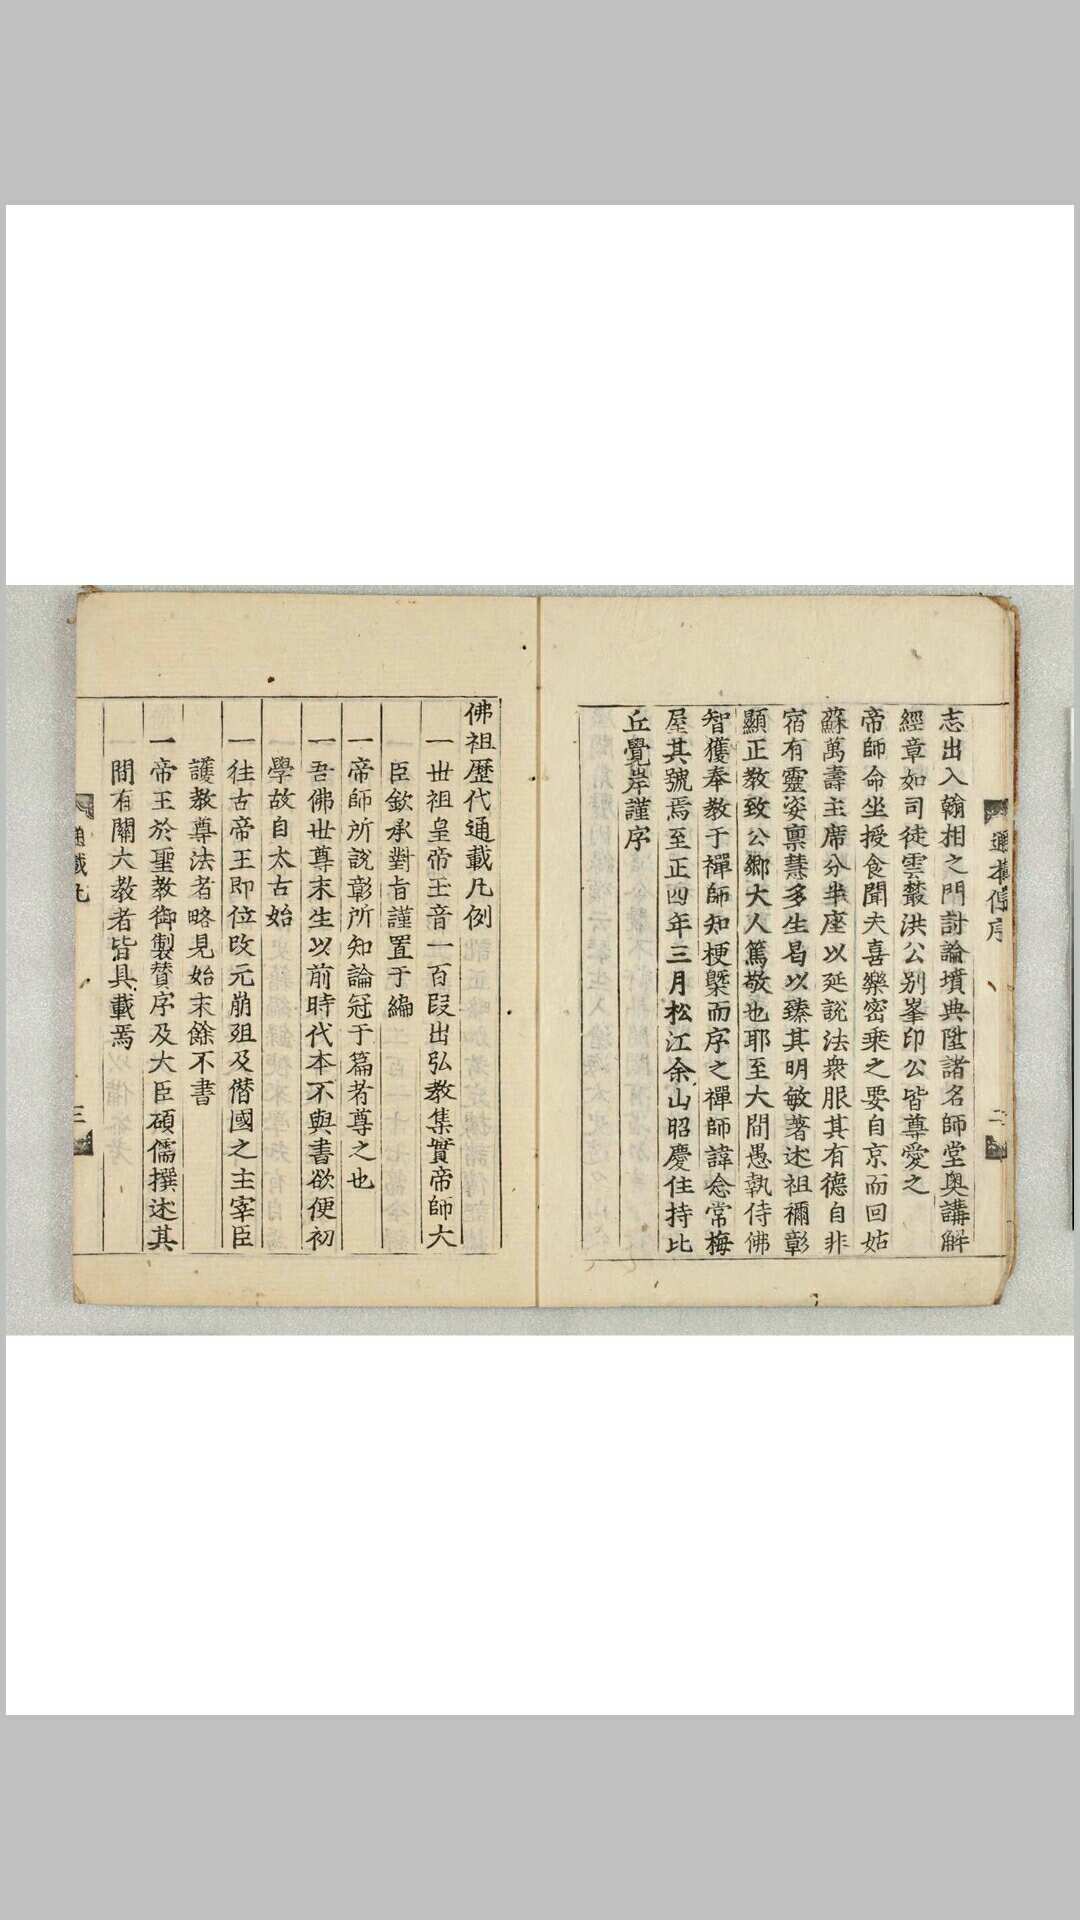 志出入翰相之門討論墳典陞諸名師堂奧講解
經章如司徒雲麓洪公別峯印公皆尊愛之
帝師命坐授食聞夫喜樂密乘之要自京而回姑
蘇萬壽主席分半座以延說法衆服其有德自非
宿有靈姿禀慧多生曷以臻其明敏著述祖禰彰
顯正教致公鄉大人篤敬也耶至大間愚執侍佛
智獲奉教于禪師知梗槩而序之禪師諱念常梅
屋其號焉至正四年三月松江余山昭慶住持比
丘覺岸謹序
序
二
佛祖歷代通載凡例
一世祖皇帝玉音一百段出弘教集實帝師大
臣欽承對旨謹置于編
一帝師所說彰所知論冠于篇者尊之也
一吾佛世尊末生以前時代本不與書欲便初
學故自太古始
一往古帝王即位改元崩殂及僭國之主宰臣
護教尊法者略見始末餘不書
一帝王於聖教御製賛序及大臣碩儒撰述其
間有關大教者皆具載焉
通載凡
三